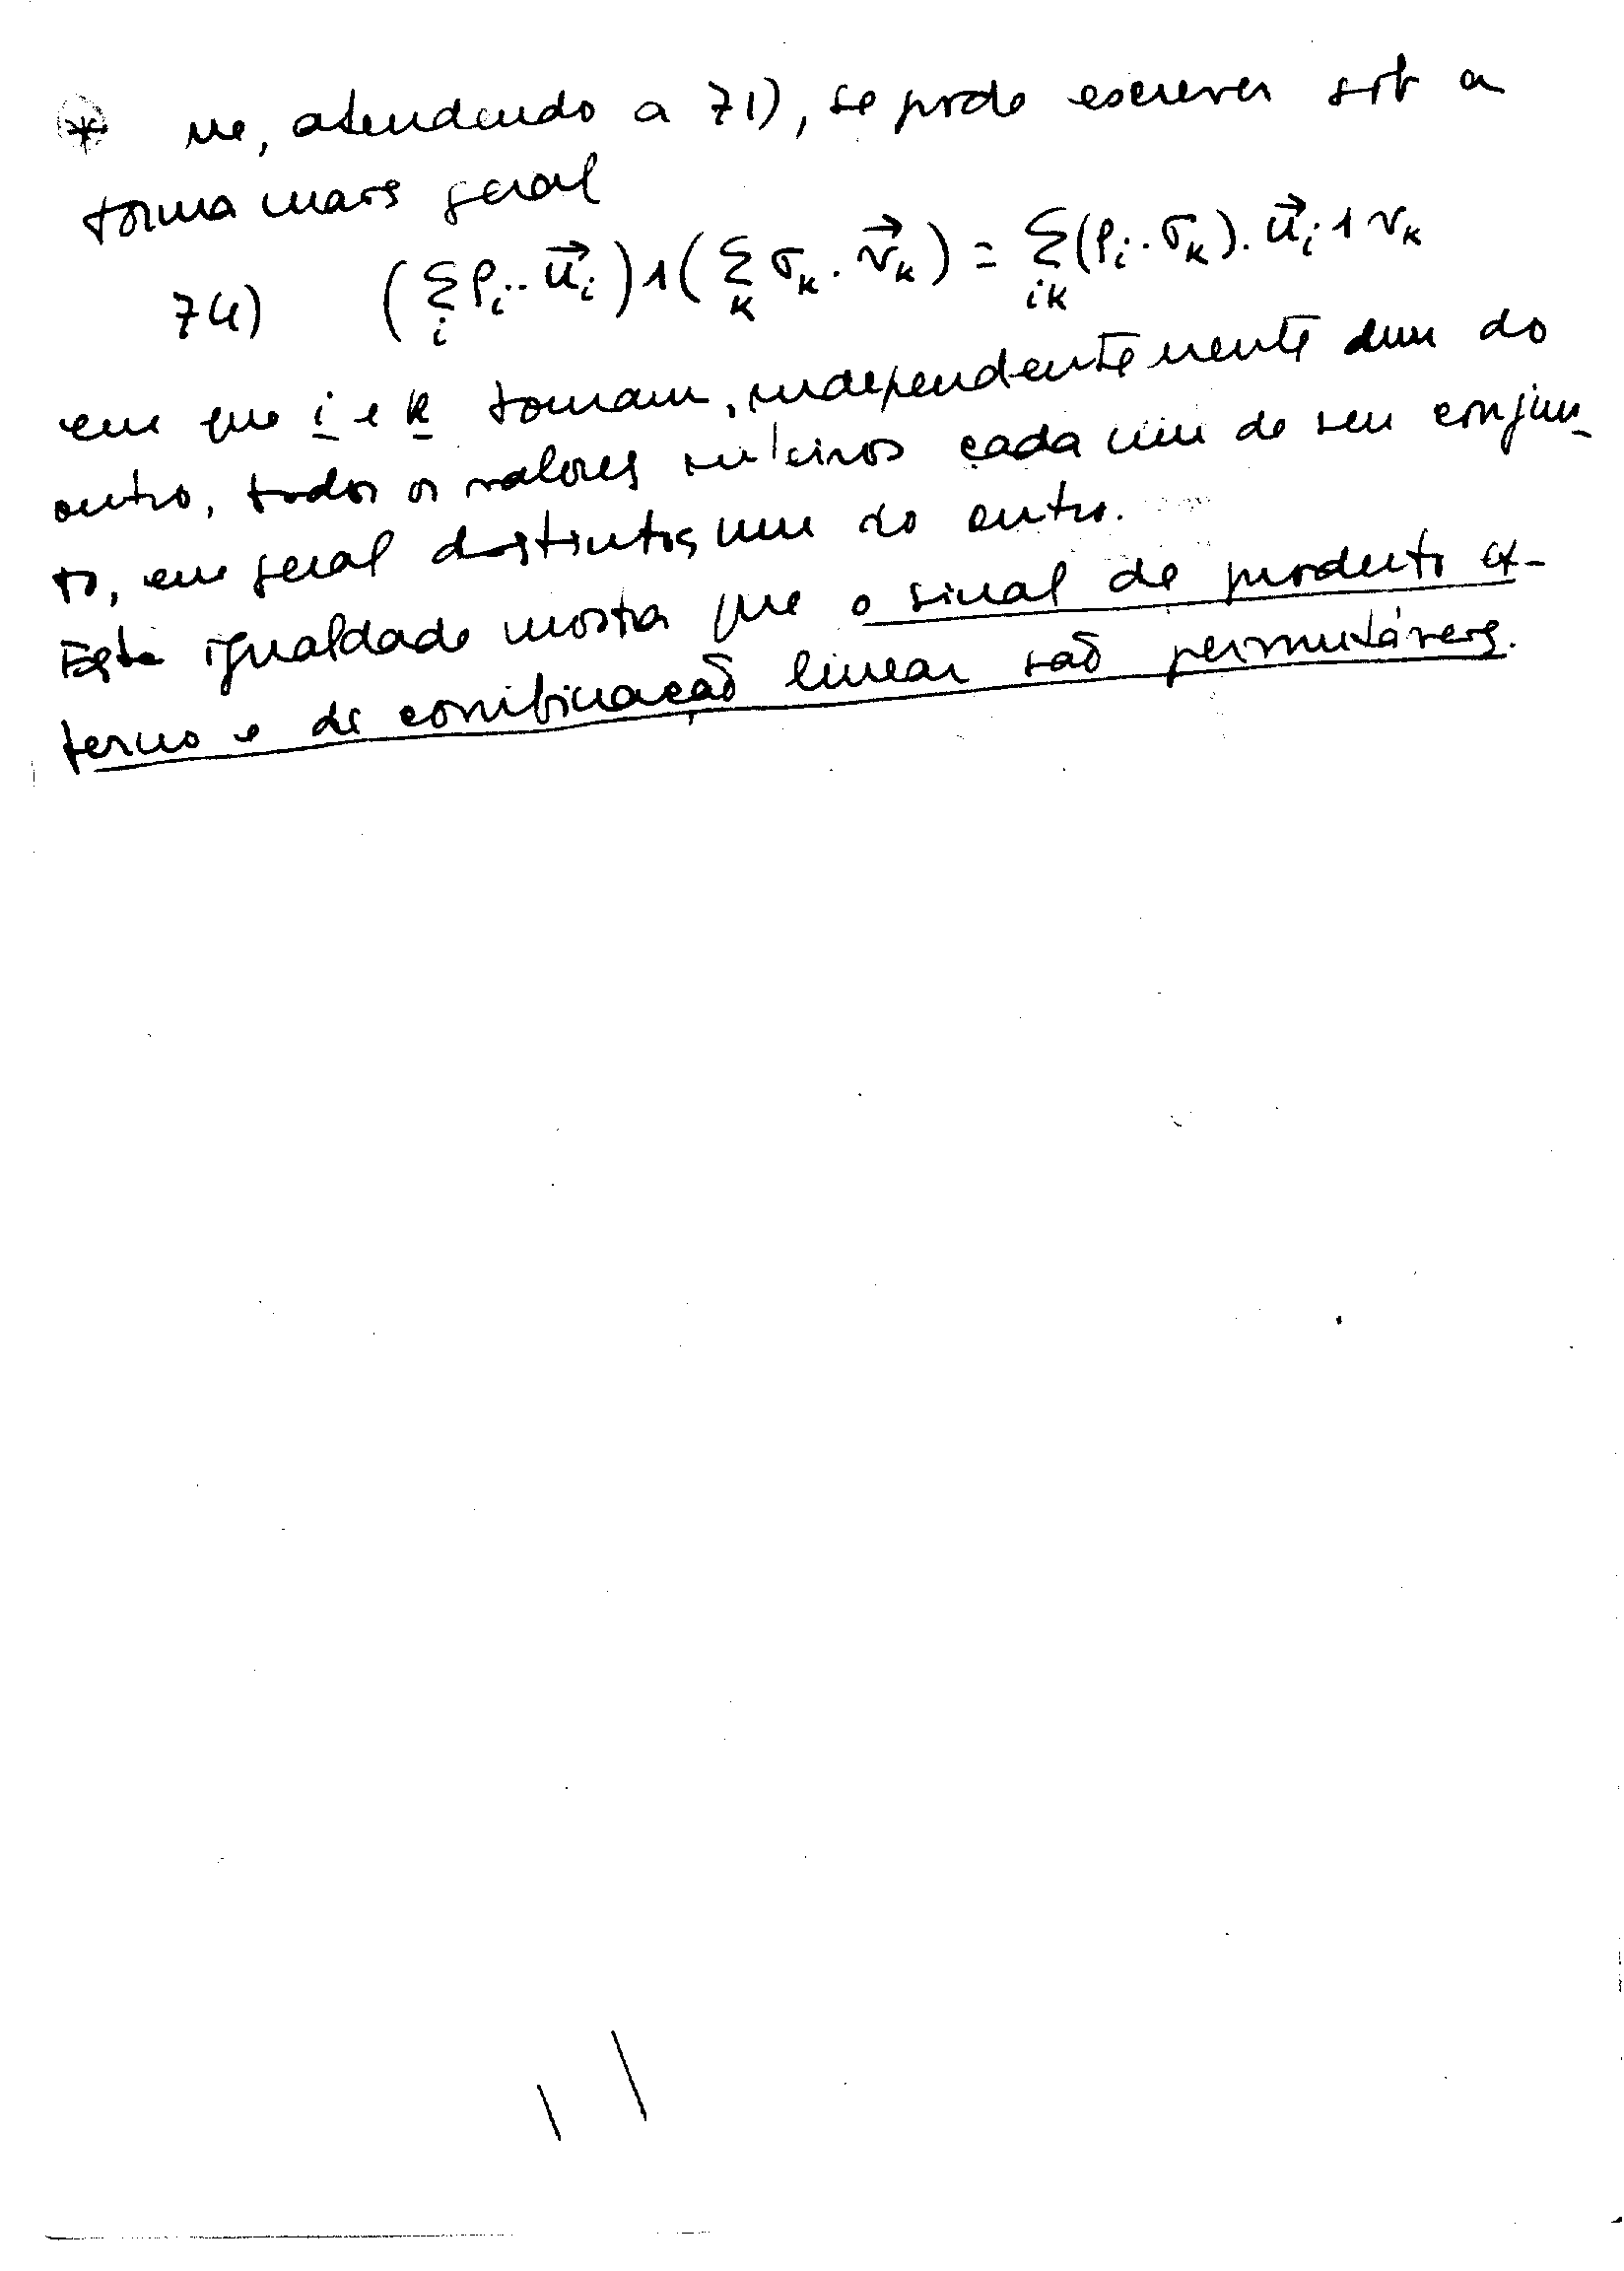 * ue, atendendo a 71), se pode escrever sob a
forma mais geral
74) (Σ_i ρ_i . u⃗_i) ∧ (Σ_k σ_k . v⃗_k) = Σ_ik (ρ_i . σ_k) . u⃗_i ∧ v_k
em que i e k tomam, independentemente dum do
outro, todos os valores inteiros cada um de seu conjun-
to, em geral distintos um do outro.
Esta igualdade mostra que o sinal de produto ex-
terno e de combinação linear são permutáveis.